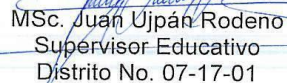 MSc. Juan Ujpán Rodeno
Supervisor Educativo
Distrito No. 07-17-01